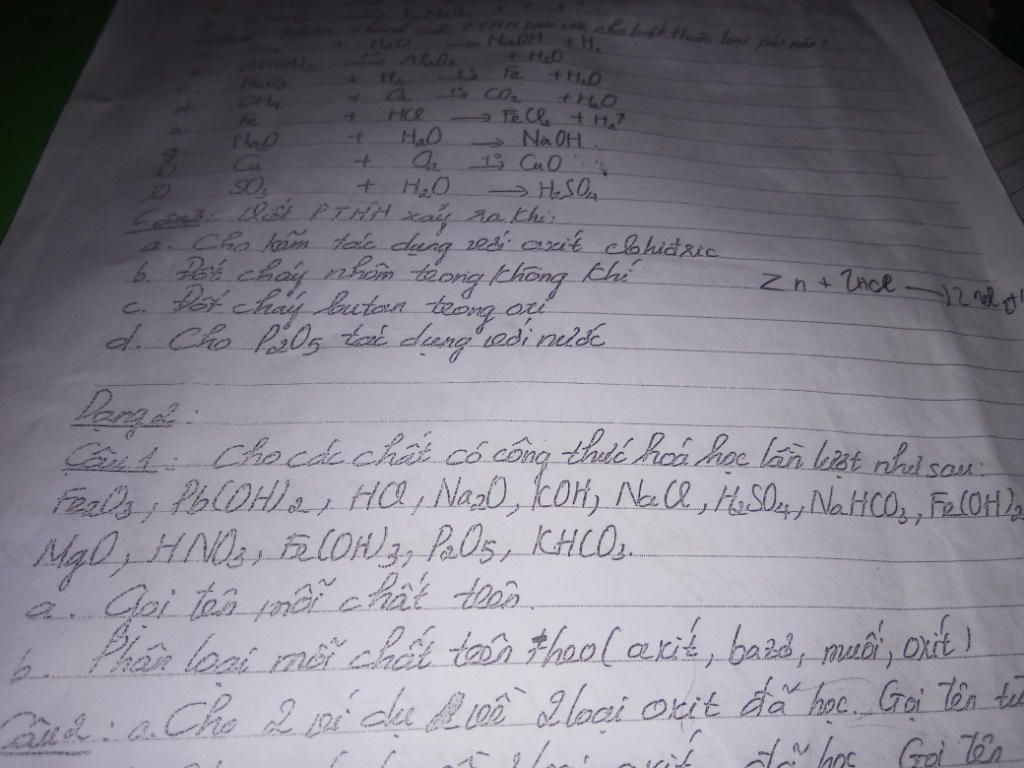 PTHH sau và cho biết thuộc loại pứ nào?
+ H₂O → NaOH + H₂
t° Al₂O₃ + H₂O
Fe₂O₃ + H₂ t°→ Fe + H₂O
d. CH₄ + O₂ t°→ CO₂ + H₂O
Fe + HCl → FeCl₂ + H₂↑
Na₂O + H₂O → NaOH
Ca + O₂ t°→ CaO
SO₃ + H₂O → H₂SO₄
Câu3: Viết PTHH xảy ra khi:
a. Cho kẽm tác dụng với axit clohiđric
b. Đốt cháy nhôm trong không khí
Zn + 2HCl →
c. Đốt cháy butan trong oxi
d. Cho P₂O₅ tác dụng với nước
Dạng 2:
Câu 1: Cho các chất có công thức hoá học lần lượt như sau:
Fe₂O₃, Pb(OH)₂, HCl, Na₂O, KOH, NaCl, H₂SO₄, NaHCO₃, Fe(OH)₂
MgO, HNO₃, Fe(OH)₃, P₂O₅, KHCO₃.
a. Gọi tên mỗi chất trên.
b. Phân loại mỗi chất trên theo (axit, bazơ, muối, oxit)
Câu2: a. Cho 2 ví dụ về 2 loại oxit đã học. Gọi tên từ
đã học. Gọi tên